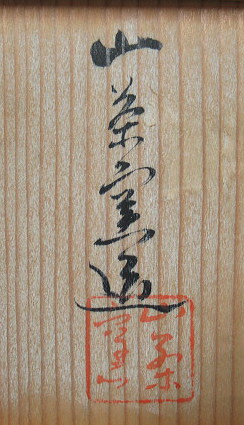 山茶窯造
山茶窯